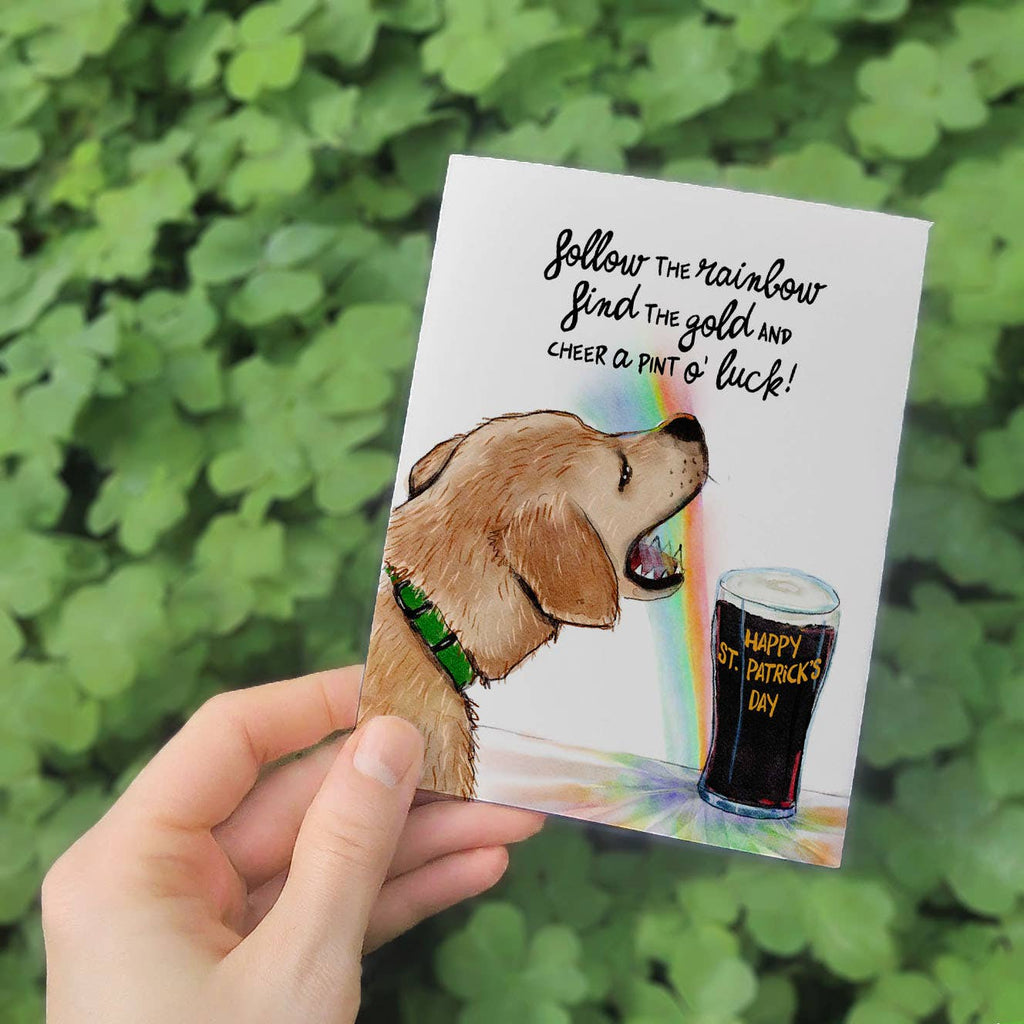 follow THE rainbow
find THE gold AND
CHEER a PINT o' luck!
HAPPY
ST. PATRICK'S
DAY